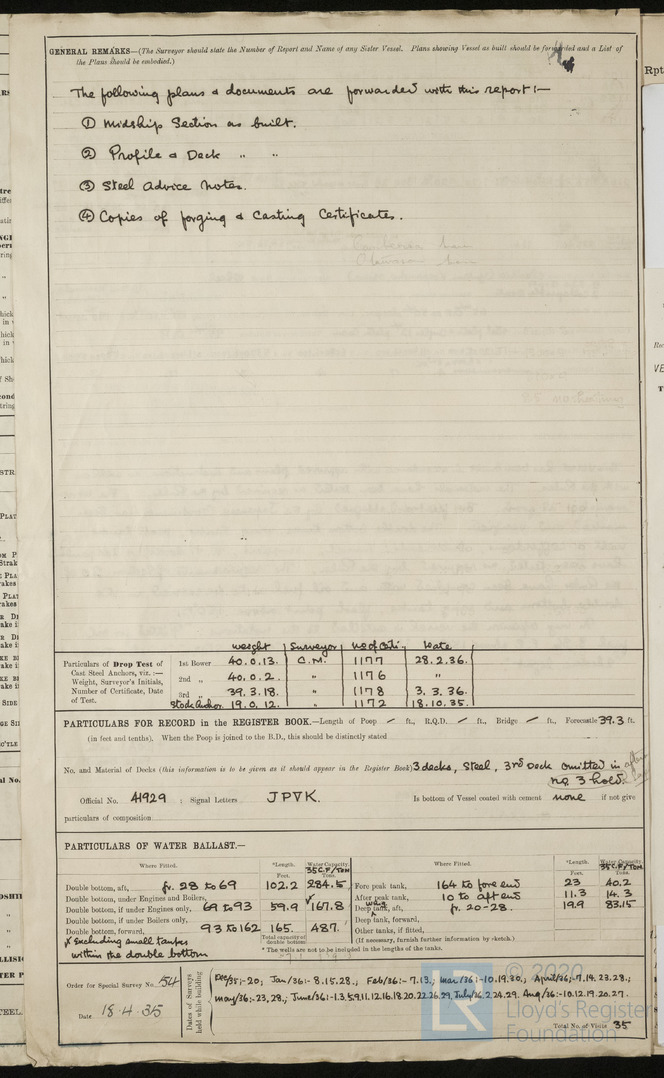 GENERAL REMARKS—(The Surveyor should state the Number of Report and Name of any Sister Vessel. Plans showing Vessel as built should be forwarded and a List of
the Plans should be embodied.)
The following plans & documents are forwarded with this report :—
① Midship Section as built.
② Profile & Deck " "
③ Steel Advice notes.
④ Copies of forging & Casting Certificates.
weight Surveyor no of Certi. Date
Particulars of Drop Test of
Cast Steel Anchors, viz. :—
Weight, Surveyor's Initials,
Number of Certificate, Date
of Test.
1st Bower 40.0.13. C.M. 1177 28.2.36.
2nd " 40.0.2. " 1176 "
3rd " 39.3.18. " 1178 3.3.36.
Stock Anchor. 19.0.12. " 1172 18.10.35.
PARTICULARS FOR RECORD in the REGISTER BOOK.—Length of Poop ft., R.Q.D. ft., Bridge ft., Forecastle 39.3 ft.
(in feet and tenths). When the Poop is joined to the B.D., this should be distinctly stated
No. and Material of Decks (this information is to be given as it should appear in the Register Book) 3 decks, Steel, 3rd Deck omitted in
no. 3 hold.
Official No. 41929 ; Signal Letters JPVK. Is bottom of Vessel coated with cement none if not give
particulars of composition
PARTICULARS OF WATER BALLAST.—
Where Fitted. *Length. Water Capacity. Where Fitted. *Length. Water Capacity.
Feet. 35 C.F/TON Tons. Feet. 35 C.F/TON Tons.
Double bottom, aft, fr. 28 to 69 102.2 284.5 Fore peak tank, 164 to fore end 23 40.2
Double bottom, under Engines and Boilers, After peak tank, 10 to aft end 11.3 14.3
Double bottom, if under Engines only, 69 to 93 59.9 167.8 Deep tank, aft, fr. 20-28. 19.9 83.15
Double bottom, if under Boilers only, Deep tank, forward,
Double bottom, forward, 93 to 162 165. 487. Other tanks, if fitted,
Total capacity of double bottom (If necessary, furnish further information by sketch.)
x excluding small tanks
within the double bottom
* The wells are not to be included in the lengths of the tanks.
Order for Special Survey No. 54
Date 18.4.35
Dates of Surveys held while building
Dec/35:-20; Jan/36:- 8.15.28., Feb/36:- 7.13., Mar/36:-10.19.30., April/36:-7.14.23.28.;
May/36:-23,28., June/36:-1.3.5.9.11.12.16.18.20.22.26.29. July/36:2.24.29. Aug/36:-10.12.19.20.27.
Total No. of Visits 35
© 2020
LR
Lloyd's Register
Foundation